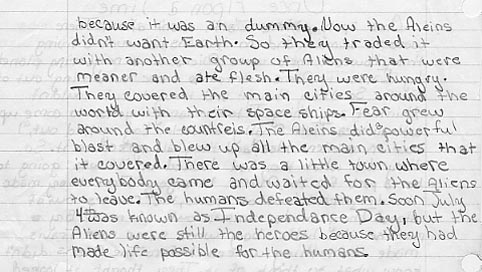 because it was an dummy. Now the Aleins
didn't want Earth. So they traded it
with another group of Aliens that were
meaner and ate flesh. They were hungry.
They covered the main cities around the
world with their space ships. Fear grew
around the countreis. The Aleins did powerful
blast and blew up all the main cities that
it covered. There was a little town where
everybody came and waited for the Aliens
to leave. The humans defeated them. Soon July
4th was known as Independance Day, but the
Aliens were still the heroes because they had
made life possible for the humans.